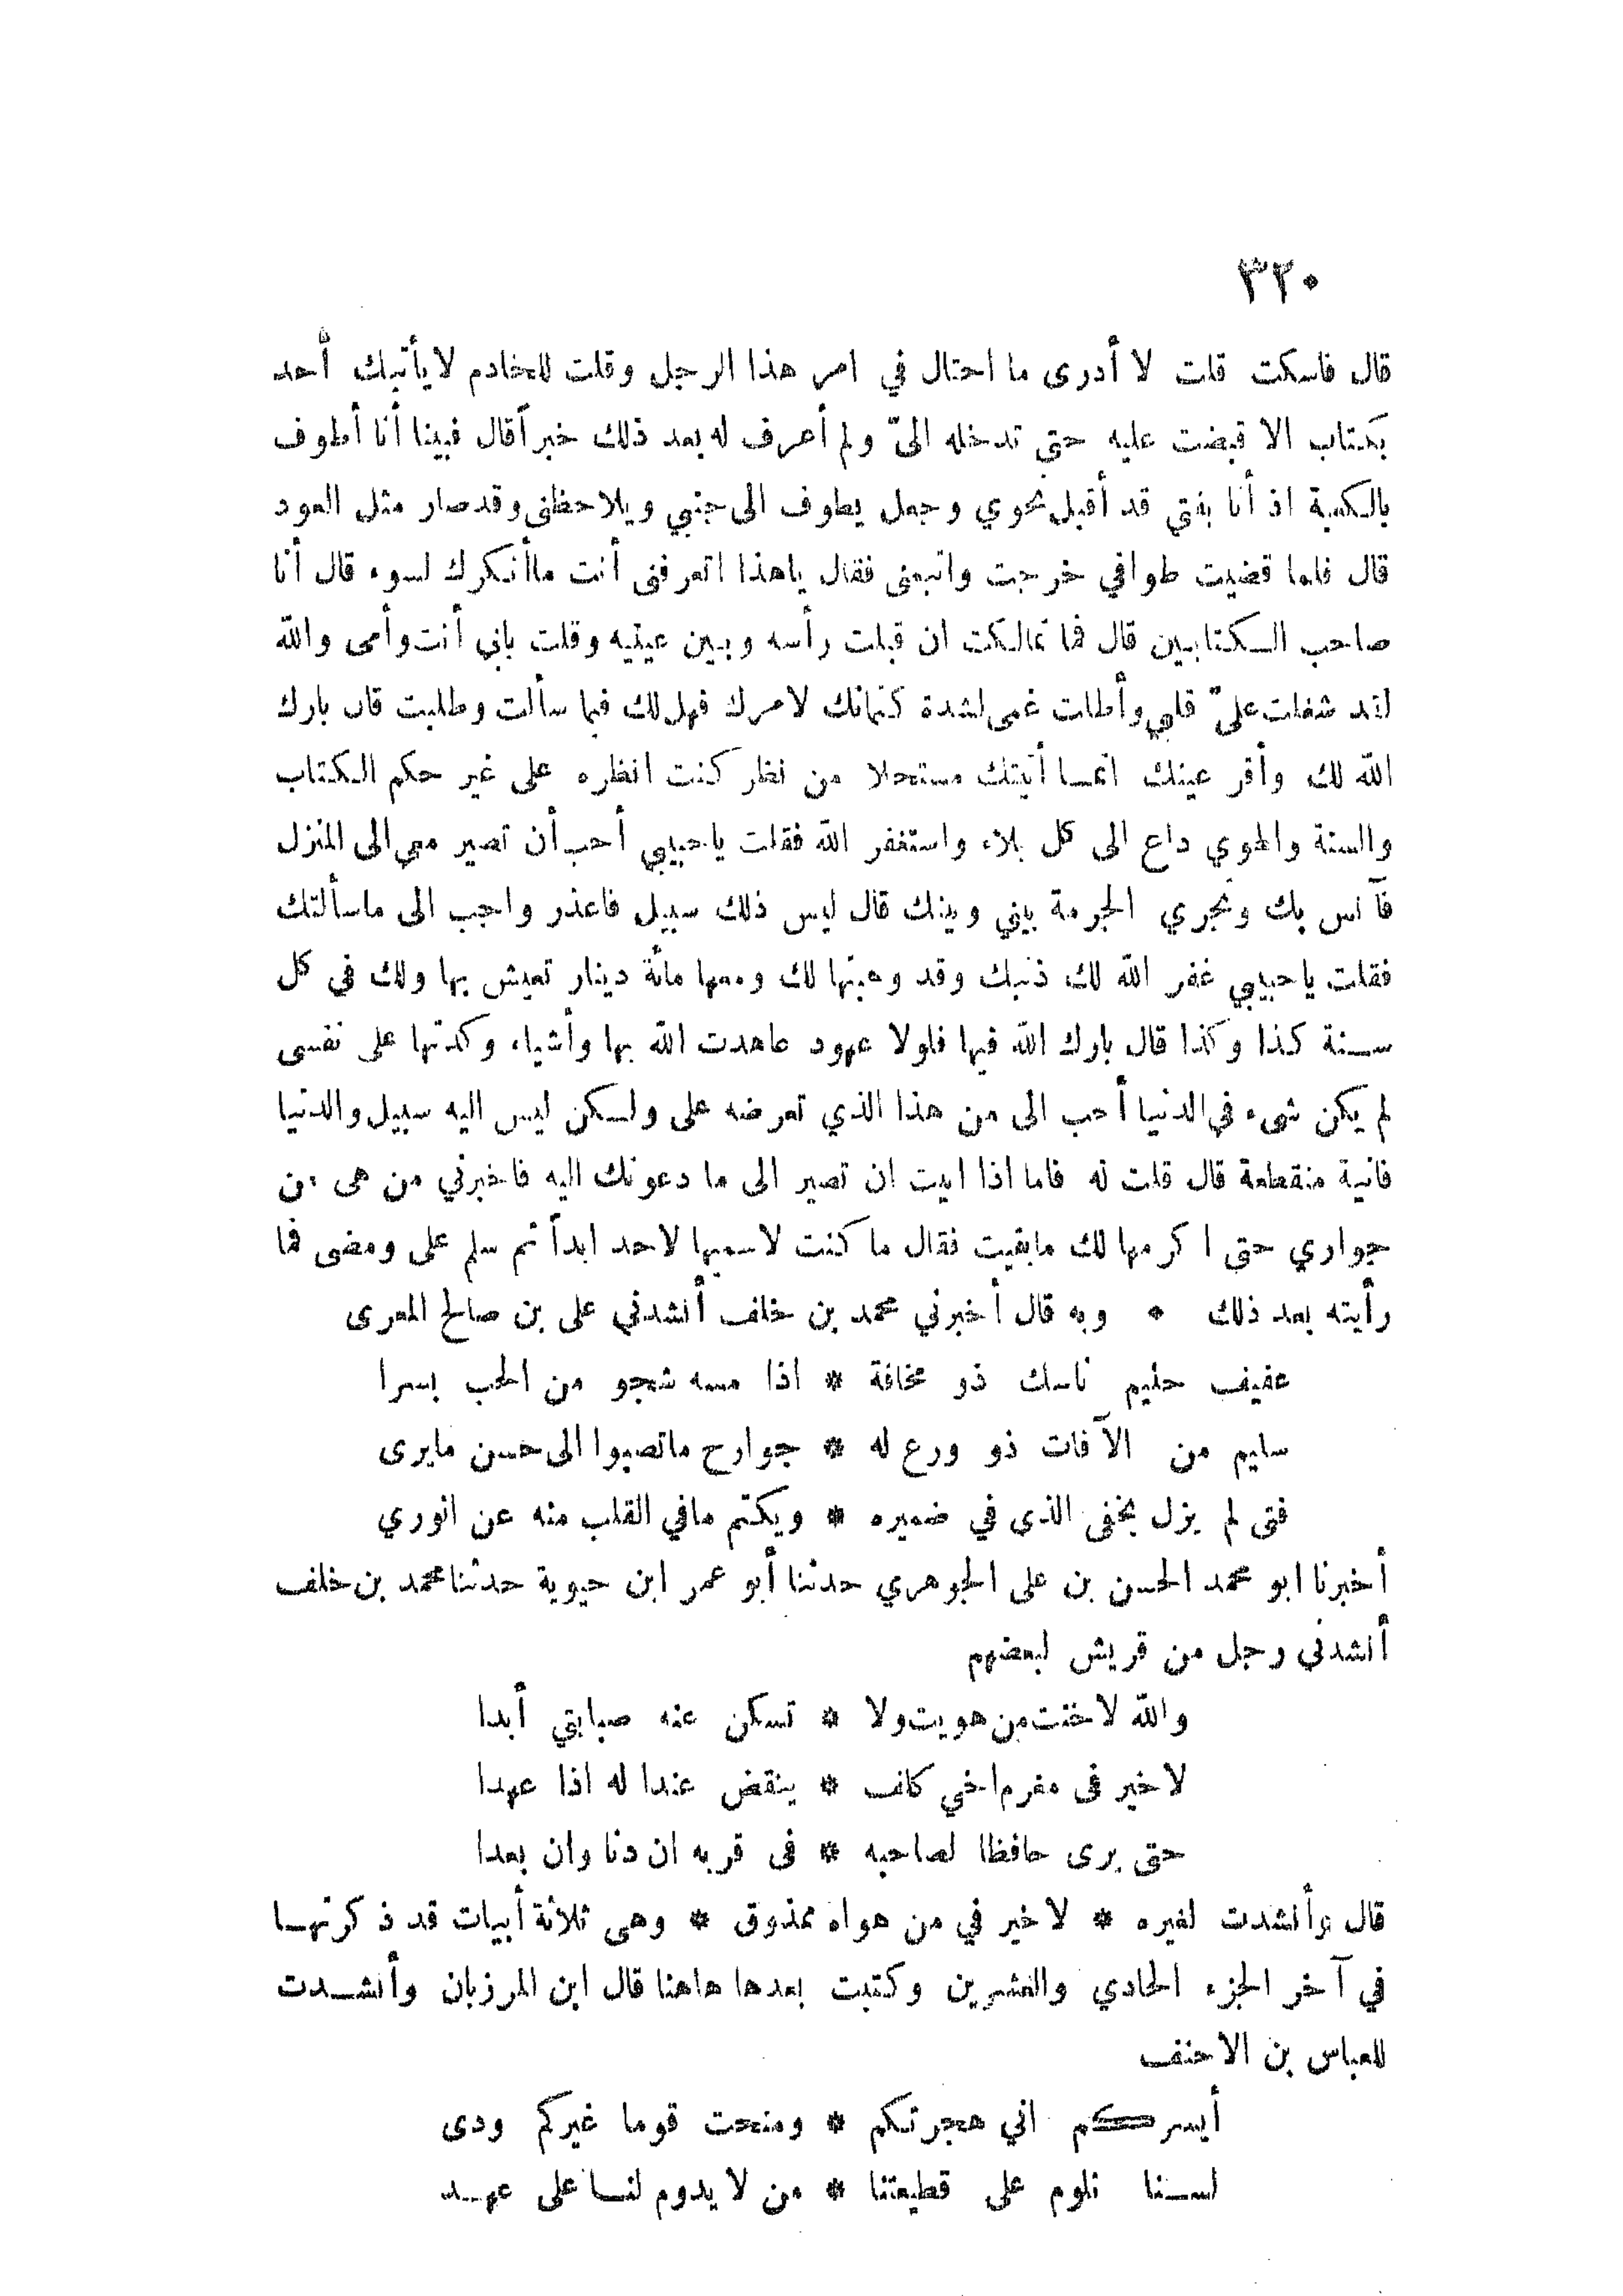 ٣٢٠
قال فاسكت قلت لا أدرى ما احتال في امر هذا الرجل وقلت للخادم لا يأتيك أحد
بكتاب الا قبضت عليه حتى تدخله الىّ ولم أعرف له بعد ذلك خبراً قال فبينا أنا أطوف
بالكعبة اذ أنا بفتي قد أقبل نحوي وجعل يطوف الى جنبي ويلاحظنى وقد صار مثل العود
قال فلما قضيت طوافي خرجت واتبعنى فقال ياهذا اتعرفنى أنت ماأنكرك لسوء قال أنا
صاحب الكتابين قال فما تمالكت ان قبلت رأسه وبين عينيه وقلت بابي أنت وأمى والله
لقد شغلت علىّ قلبي وأطلت غمى لشدة كتمانك لامرك فهل لك فيما سألت وطلبت قال بارك
الله لك وأقر عينك انما أتيتك مستحلا من نظر كنت انظره على غير حكم الكتاب
والسنة والهوي داع الى كل بلاء واستغفر الله فقلت ياحبيبي أحب أن تصير معي الى المنزل
فآنس بك وتجري الحرمة بيني وبينك قال ليس ذلك سبيل فاعذر واجب الى ماسألتك
فقلت ياحبيبي غفر الله لك ذنبك وقد وهبتها لك ومعها مائة دينار تعيش بها ولك في كل
سنة كذا وكذا قال بارك الله فيها فلولا عهود عاهدت الله بها وأشياء وكدتها على نفسى
لم يكن شىء في الدنيا أحب الى من هذا الذي تعرضه على ولكن ليس اليه سبيل والدنيا
فانية منقطعة قال قلت له فاما اذا ابيت ان تصير الى ما دعوتك اليه فاخبرني من هى من
جواري حتى اكرمها لك مابقيت فقال ما كنت لاسميها لاحد ابداً ثم سلم على ومضى فما
رأيته بعد ذلك * وبه قال أخبرني محمد بن خلف أنشدني على بن صالح المعرى
عفيف حليم ناسك ذو مخافة * اذا مسه شجو من الحب بسرا
سليم من الآفات ذو ورع له * جوارح ماتصبوا الى حسن مايرى
فتى لم يزل يخفى الذى في ضميره * ويكتم مافي القلب منه عن الوري
أخبرنا ابو محمد الحسن بن على الجوهري حدثنا أبو عمر ابن حيوية حدثنا محمد بن خلف
أنشدنى رجل من قريش لبعضهم
والله لاخنت من هويت ولا * تسكن عنه صبابتي أبدا
لاخير فى مغرم اخي كلف * ينقض عندا له اذا عهدا
حتى يرى حافظا لصاحبه * فى قربه ان دنا وان بعدا
قال وأنشدت لغيره * لاخير في من هواه ممذوق * وهى ثلاثة أبيات قد ذكرتها
في آخر الجزء الحادي والعشرين وكتبت بعدها هاهنا قال ابن المرزبان وأنشدت
للعباس بن الاحنف
أيسركم اني هجرتكم * ومنحت قوما غيركم ودى
لسنا نلوم على قطيعتنا * من لا يدوم لنا على عهد